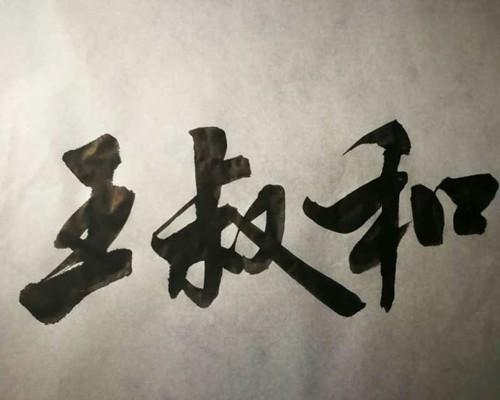 王叔和